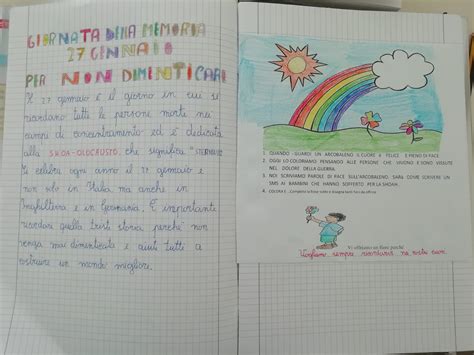 GIORNATA DELLA MEMORIA
27 GENNAIO
PER NON DIMENTICARE
Il 27 gennaio è il giorno in cui si
ricordano tutte le persone morte nei
campi di concentramento ed è dedicata
alla SHOA-OLOCAUSTO che significa
Si celebra ogni anno il 27 gennaio e
non solo in Italia ma anche in
Inghilterra e in Germania. È importante
ricordare quella triste storia perché non
venga mai dimenticata e aiuti tutti a
costruire un mondo migliore.
1. QUANDO GUARDI UN ARCOBALENO IL CUORE È FELICE E PIENO DI PACE
2. OGGI LO COLORIAMO PENSANDO ALLE PERSONE CHE VIVONO E SONO VISSUTE
NEL DOLORE DELLA GUERRA.
3. NOI SCRIVIAMO PAROLE DI PACE SULL'ARCOBALENO. SARÀ COME SCRIVERE UN
SMS AI BAMBINI CHE HANNO SOFFERTO PER LA SHOAH.
4. COLORA E COMPLETA la frase sotto e disegna tanti fiori
Vi offriamo un fiore perché
Vogliamo sempre ricordarvi nei nostri cuori